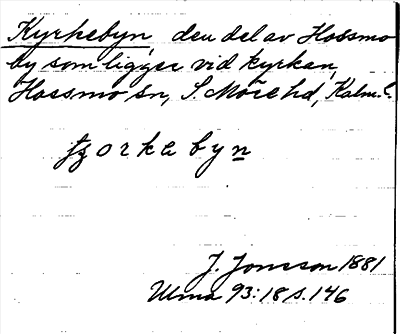 Kyrkebyn den del av Hossmo
by som ligger vid kyrkan,
Hossmo sn, S. Möre hd, Kalm. l.
orkebyn
J. Jonsson 1881
Ulma 93:18 s. 146